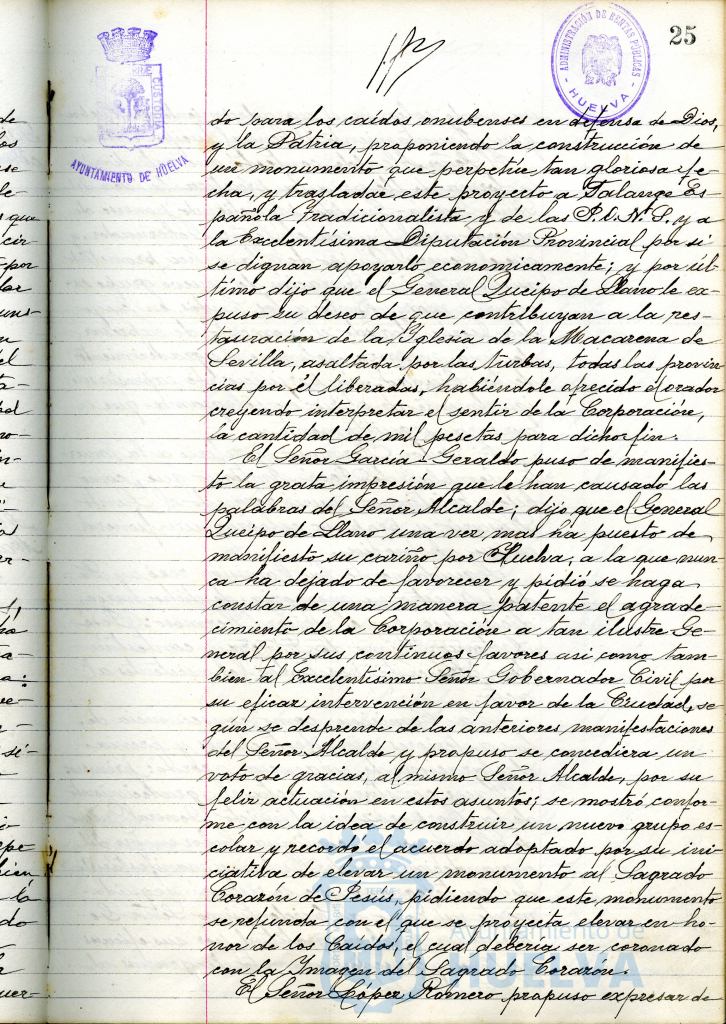 25
ADMINISTRACIÓN DE RENTAS PÚBLICAS
- HUELVA -
CUSTODIA
AYUNTAMIENTO DE HUELVA
do para los caídos onubenses en defensa de Dios,
y la Patria, proponiendo la construcción de
un monumento que perpetúe tan gloriosa fe-
cha, y trasladar este proyecto a Falange Es-
pañola Tradicionalista y de las J.O.N.S. y a
la Excelentísima Diputación Provincial por si
se dignan apoyarlo economicamente; y por úl-
timo dijo que el General Queipo de Llano le ex-
puso su deseo de que contribuyan a la res-
tauración de la Yglesia de la Macarena de
Sevilla, asaltada por las turbas, todas las provin-
cias por él liberadas, habiéndole ofrecido el orador
creyendo interpretar el sentir de la Corporación,
la cantidad de mil pesetas para dicho fin.
El Señor García Geraldo puso de manifies-
to la grata impresión que le han causado las
palabras del Señor Alcalde; dijo que el General
Queipo de Llano una vez mas ha puesto de
manifiesto su cariño por Huelva, a la que nun-
ca ha dejado de favorecer y pidió se haga
constar de una manera patente el agrade-
cimiento de la Corporación a tan ilustre Ge-
neral por sus continuos favores asi como tam-
bien al Excelentisimo Señor Gobernador Civil por
su eficaz intervención en favor de la Ciudad, se-
gún se desprende de las anteriores manifestaciones
del Señor Alcalde y propuso se concediera un
voto de gracias, al mismo Señor Alcalde, por su
feliz actuación en estos asuntos; se mostró confor-
me con la idea de construir un nuevo grupo es-
colar y recordó el acuerdo adoptado por su ini-
ciativa de elevar un monumento al Sagrado
Corazón de Jesús, pidiendo que este monumento
se refunda con el que se proyecta elevar en ho-
nor de los Caidos, el cual deberia ser coronado
con la Imagen del Sagrado Corazón.
El Señor López Romero propuso expresar de
Ayuntamiento de
HUELVA